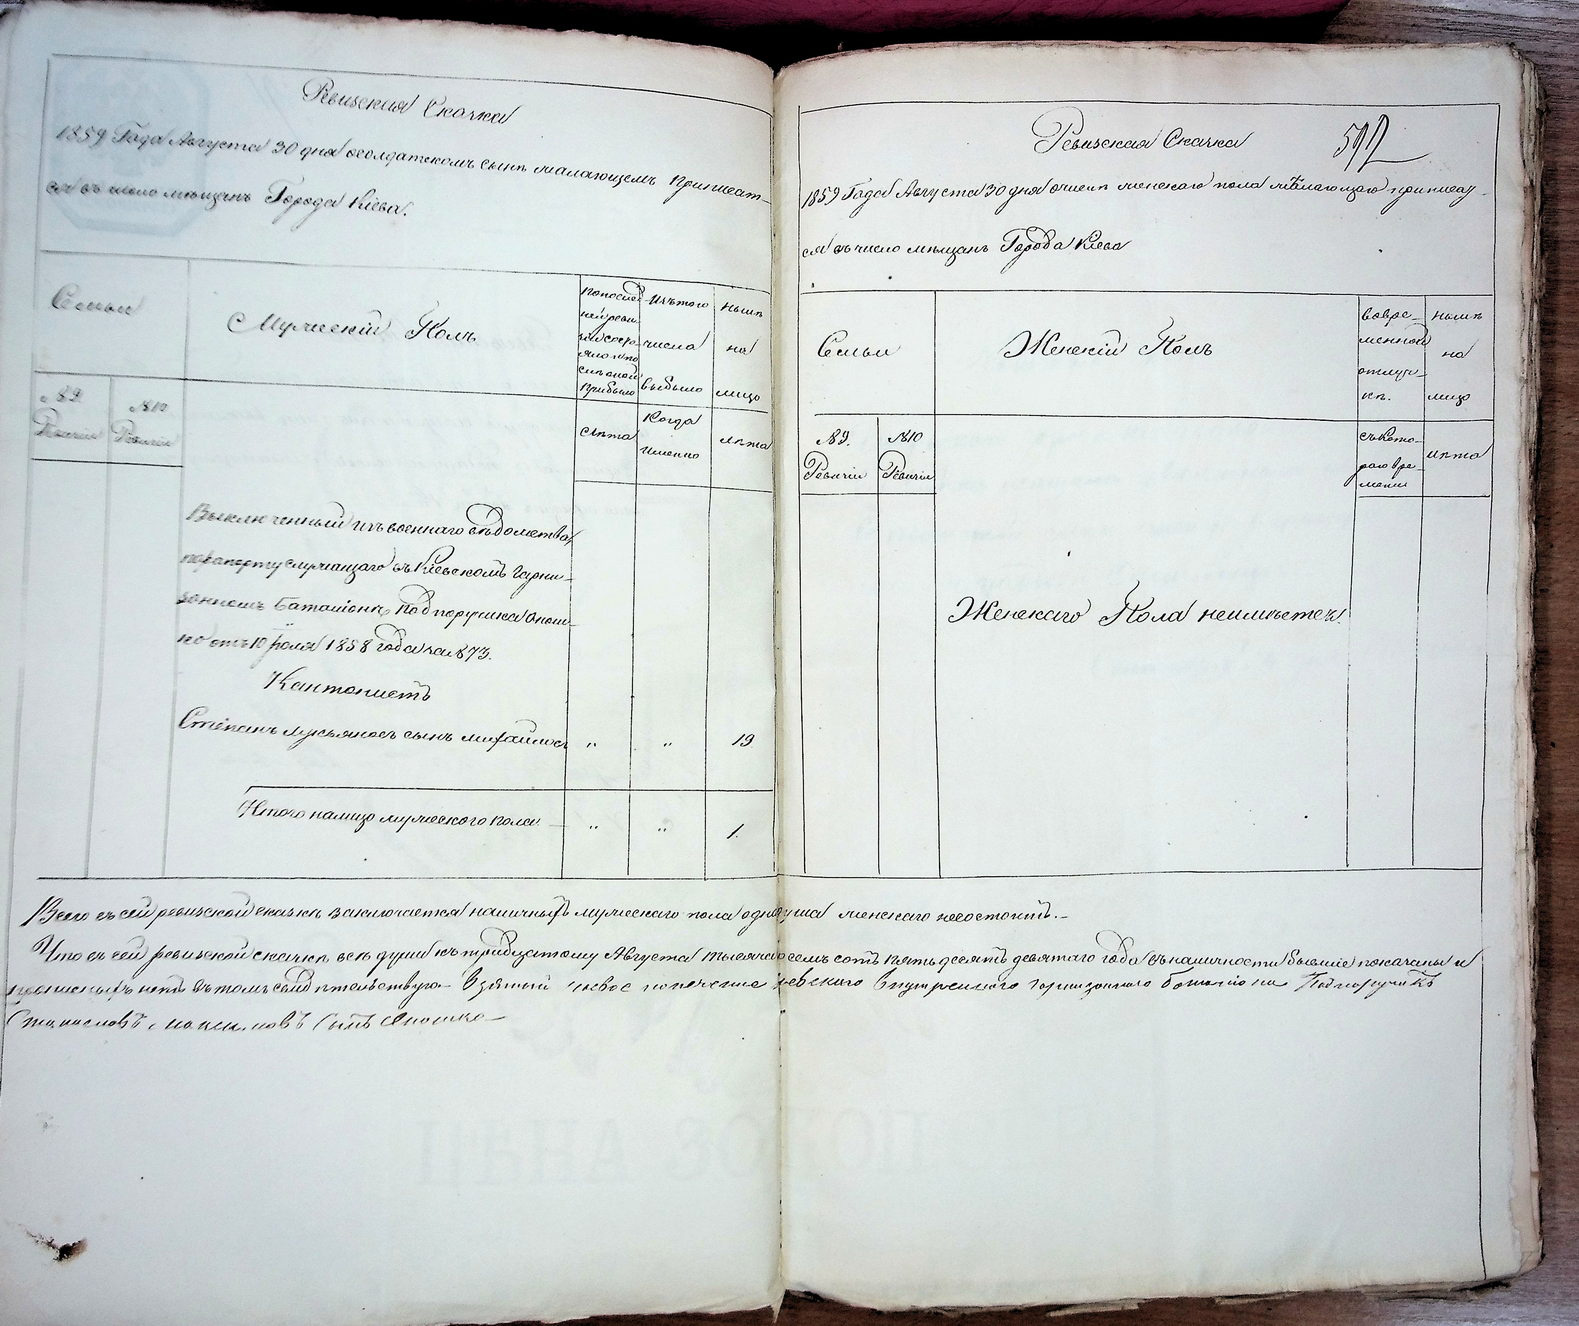 Ревизская Сказка
1859 Года Августа 30 дня осолдатскомъ сынѣ желающемъ приписат-
ся въ число мѣщанъ Города Кіева.
Семьи
Мужескій Полъ
По послѣд
ней реви
зіи состо
яло и по
слѣ оной
прибыло
Изъ того
числа
выбыло
Нынѣ
на
лицо
№ 9.
Ревизіи
№ 10
Ревизіи
Лѣта
Когда
именно
Лѣта
Выключенный изъ военнаго вѣдомства
по рапорту служащаго въ Кіевскомъ Гарни-
зонномъ Баталіонѣ Подпоручика
отъ 10 1858 года за № 873.
Кантонистъ
Степанъ Лукьяновъ сынъ Михайловъ " " 19
Итого налицо мужескаго пола " " 1.
Ревизская Сказка
592
1859 Года Августа 30 дня о лицѣ женскаго пола желающаго приписат-
ся въ число мѣщанъ Города Кіева
Семьи
Женскій Полъ
Во вре-
менной
отлуч-
кѣ.
Нынѣ
на
лицо
№ 9.
Ревизіи
№ 10
Ревизіи
Съ кото-
раго вре-
мени
Лѣта
Женскаго Пола неимѣетъ.
Всего въ сей ревизской сказкѣ заключается наличныхъ мужескаго пола одна душа женскаго несостоитъ.-
Что въ сей ревизской сказкѣ всѣ души къ тридцатому Августа тысяча восемъ сотъ пятьдесятъ девятаго года въ наличности бывшіе показаны и
прописныхъ нѣтъ въ томъ свидѣтельствую- попеченіе Кіевскаго Внутренняго гарнизоннаго баталіона Подпоручикъ
Станиславъ Максимовъ Сынъ